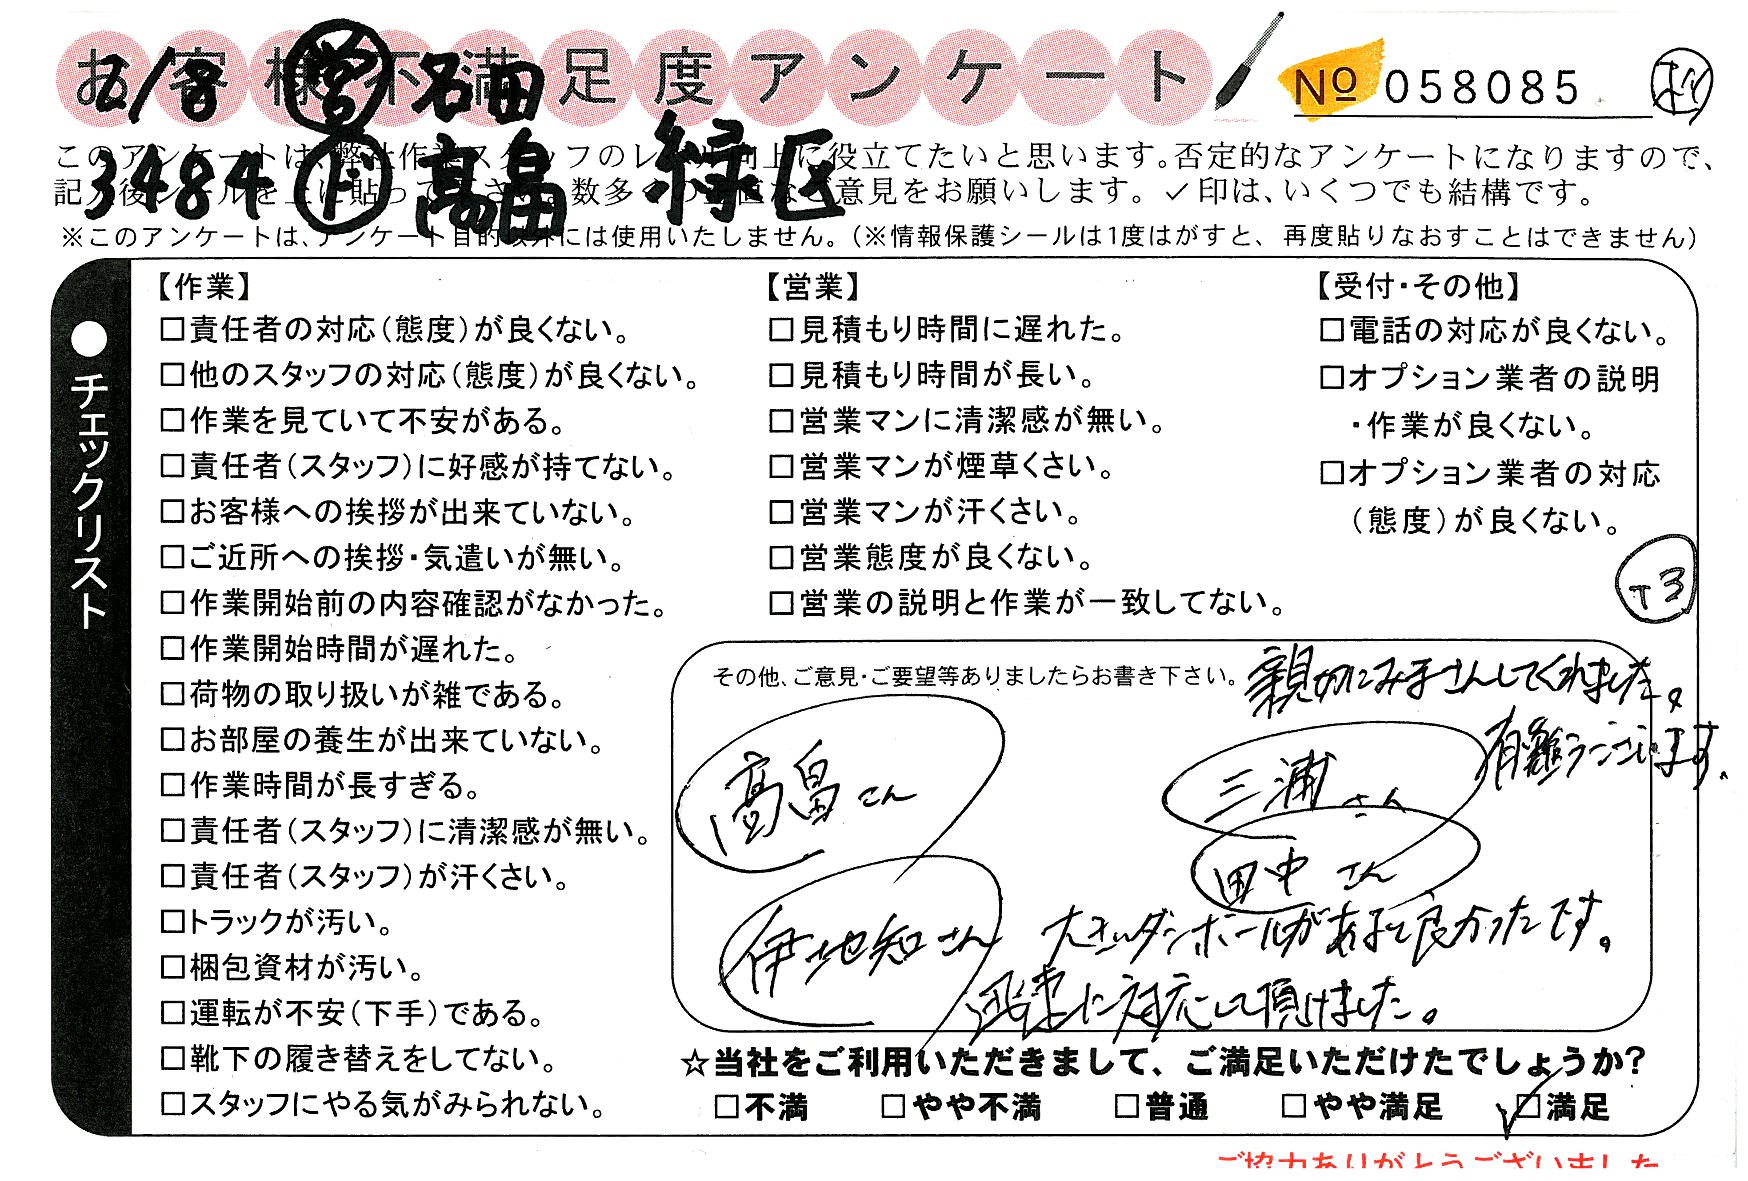 お客様不満足度アンケート
営 名田
No 058085
3484 ド 高畠 緑区
このアンケートは、弊社作業スタッフのレベル向上に役立てたいと思います。否定的なアンケートになりますので、
記入後シールを上に貼って下さい。数多くの正直なご意見をお願いします。✓印は、いくつでも結構です。
※このアンケートは、アンケート目的以外には使用いたしません。(※情報保護シールは1度はがすと、再度貼りなおすことはできません)
●チェックリスト
【作業】
□責任者の対応(態度)が良くない。
□他のスタッフの対応(態度)が良くない。
□作業を見ていて不安がある。
□責任者(スタッフ)に好感が持てない。
□お客様への挨拶が出来ていない。
□ご近所への挨拶・気遣いが無い。
□作業開始前の内容確認がなかった。
□作業開始時間が遅れた。
□荷物の取り扱いが雑である。
□お部屋の養生が出来ていない。
□作業時間が長すぎる。
□責任者(スタッフ)に清潔感が無い。
□責任者(スタッフ)が汗くさい。
□トラックが汚い。
□梱包資材が汚い。
□運転が不安(下手)である。
□靴下の履き替えをしてない。
□スタッフにやる気がみられない。
【営業】
□見積もり時間に遅れた。
□見積もり時間が長い。
□営業マンに清潔感が無い。
□営業マンが煙草くさい。
□営業マンが汗くさい。
□営業態度が良くない。
□営業の説明と作業が一致してない。
【受付・その他】
□電話の対応が良くない。
□オプション業者の説明
・作業が良くない。
□オプション業者の対応
(態度)が良くない。
T3
その他、ご意見・ご要望等ありましたらお書き下さい。
親切にみなさんしてくれました。
有難うございます。
高畠さん
三浦さん
田中さん
伊地知さん
大きいダンボールがあるて良かったです。
迅速に対応して頂けました。
☆当社をご利用いただきまして、ご満足いただけたでしょうか?
□不満 □やや不満 □普通 □やや満足 ✓□満足
ご協力ありがとうございました